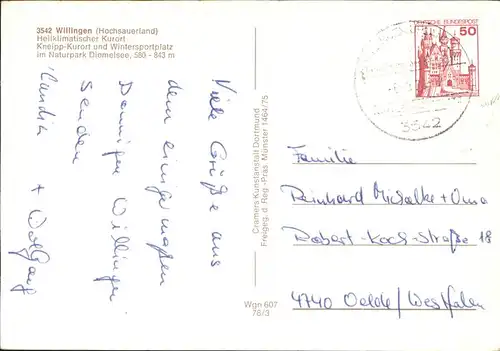 3542 Willingen (Hochsauerland)
Heilklimatischer Kurort
Kneipp-Kurort und Wintersportplatz
im Naturpark Diemelsee, 560 - 843 m
Viele Grüße aus
dem einigermaßen
Willingen
senden
+ Wolfgang
Cramers Kunstanstalt Dortmund
Freigeg. d. Reg.-Präs. Münster 1464/75
Wgn 607
76/3
DEUTSCHE BUNDESPOST
50
3542
Familie
Reinhard Michalke + Oma
Robert-Koch-Straße 18
4740 Oelde/Westfalen